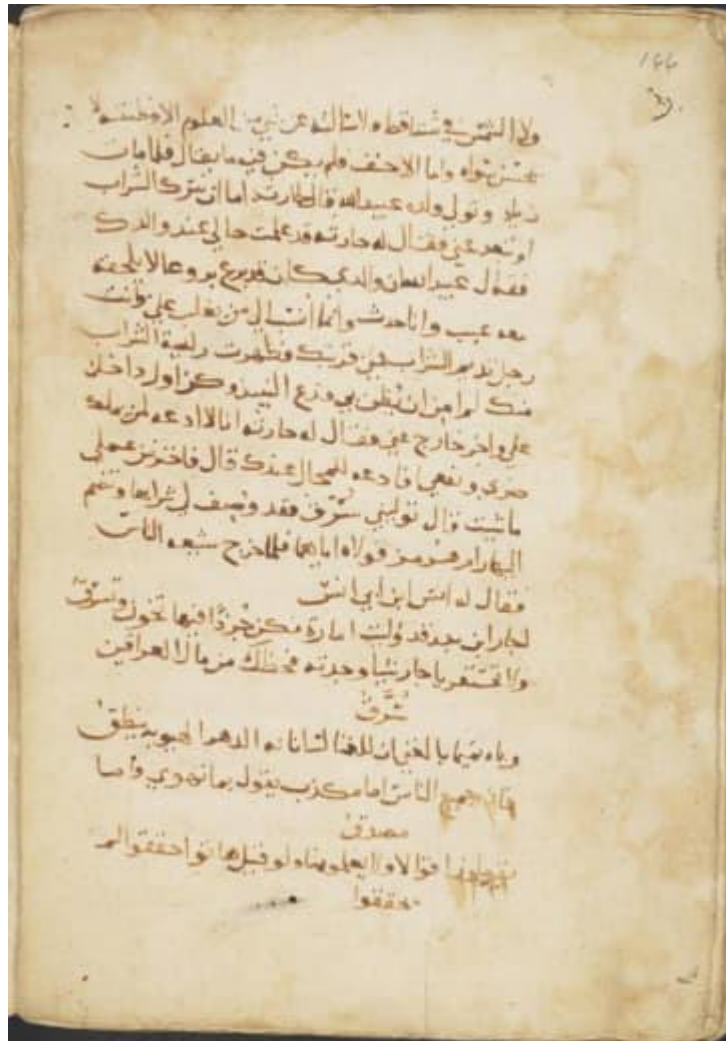 ولا الشمس في شتاء قط ولا سالته عن شي من العلوم الا وظننته لا
يحسن سواه واما الاحنف فلم يكن فيه ما يقال فلما مات
زياد وتولى ولده عبيد الله قال لحارثة اما ان تترك الشراب
او تبعد عني فقال له حارثة قد علمت حالي عند والدك
فقال عبيد الله ان والدي كان قد برع بروعا لا يلحقه
معه عيب وانا حدث وانما انسب الى من يغلب علي وانت
رجل تديم الشراب فمتى قربتك وظهرت رائحة الشراب
منك لم امن ان يظن بي فدع النبيذ وكن اول داخل
علي واخر خارج عني فقال له حارثة انا لا ادعه لمن يملك
ضري ونفعي فادعه للحال عندك قال فاختر من عملي
ما شئت قال توليني سُرّق فقد وصف لي شرابها وتضم
اليها رام هرمز فولاه اياهما فلما خرج شيعه الناس
فقال له انس ابن ابي انس
احار ابن بدر قد وليت امارة فكن جرذا فيها تخون وتسرق
ولا تحتقر يا حار شيا وجدته فحظك من مال العراقين
سُرَّق
وباه تميما بالغنى ان للغنا لسانا به المرء الهيوبة ينطق
فان جميع الناس اما مكذب يقول بما تهوى واما
مصدق
يقولون اقوالا ولا يعلمونها ولو قيل هاتوا حققوا لم
يحققوا